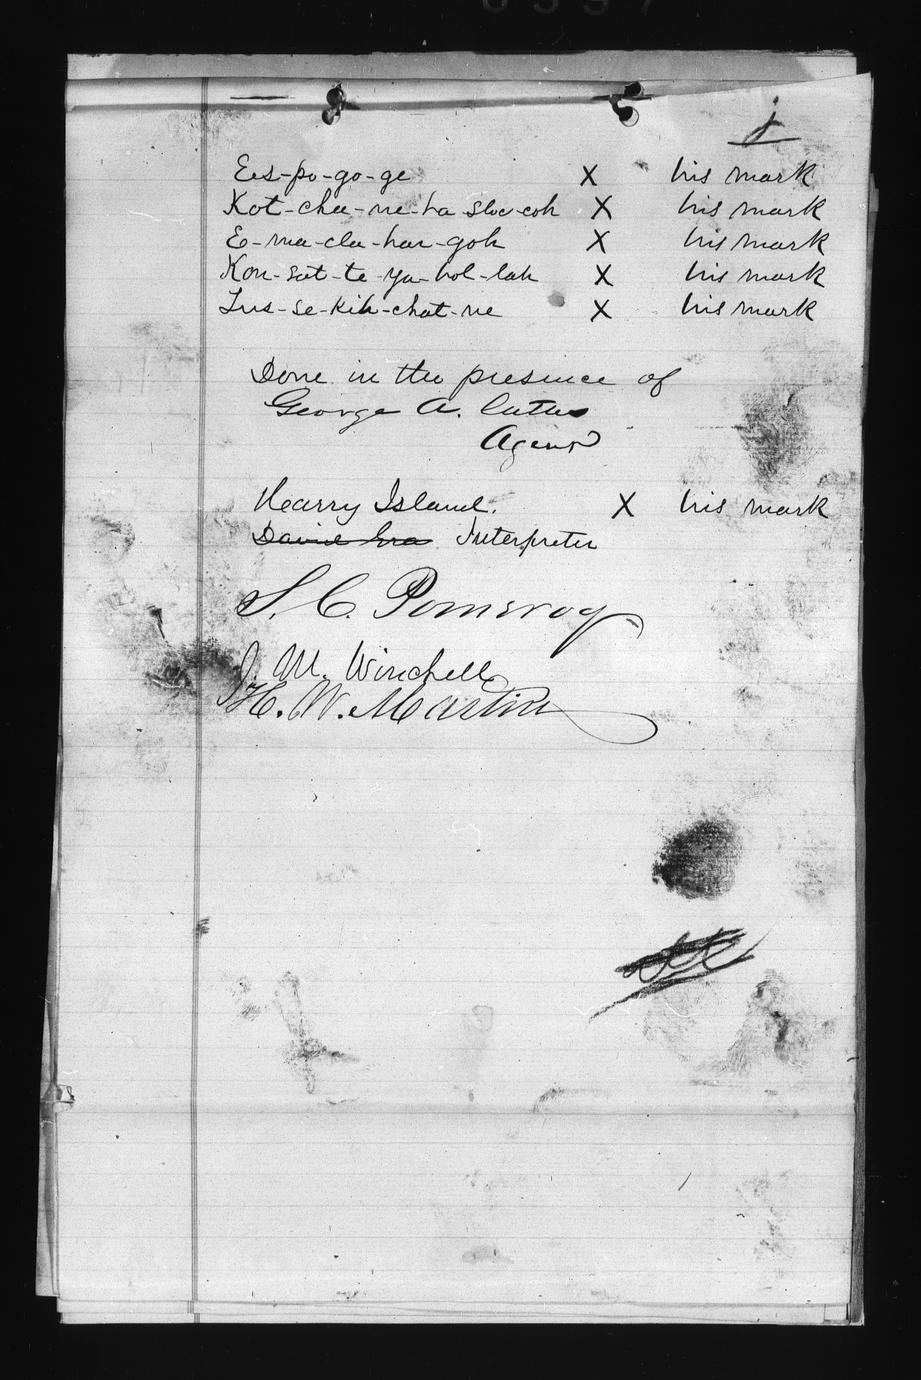 j
Ees-po-go-ge X his mark
Kot-cha-ne-ha sloc-coh X his mark
E-ma-cla-har-goh X his mark
Kon-sat-te-ya-hol-lah X his mark
Tus-se-kih-chat-ne X his mark
Done in the presence of
George A. Cutler
Agent
Harry Island. X his mark
Interpreter
S. C. Pomeroy
J. M. Winchell
H. W. Martin